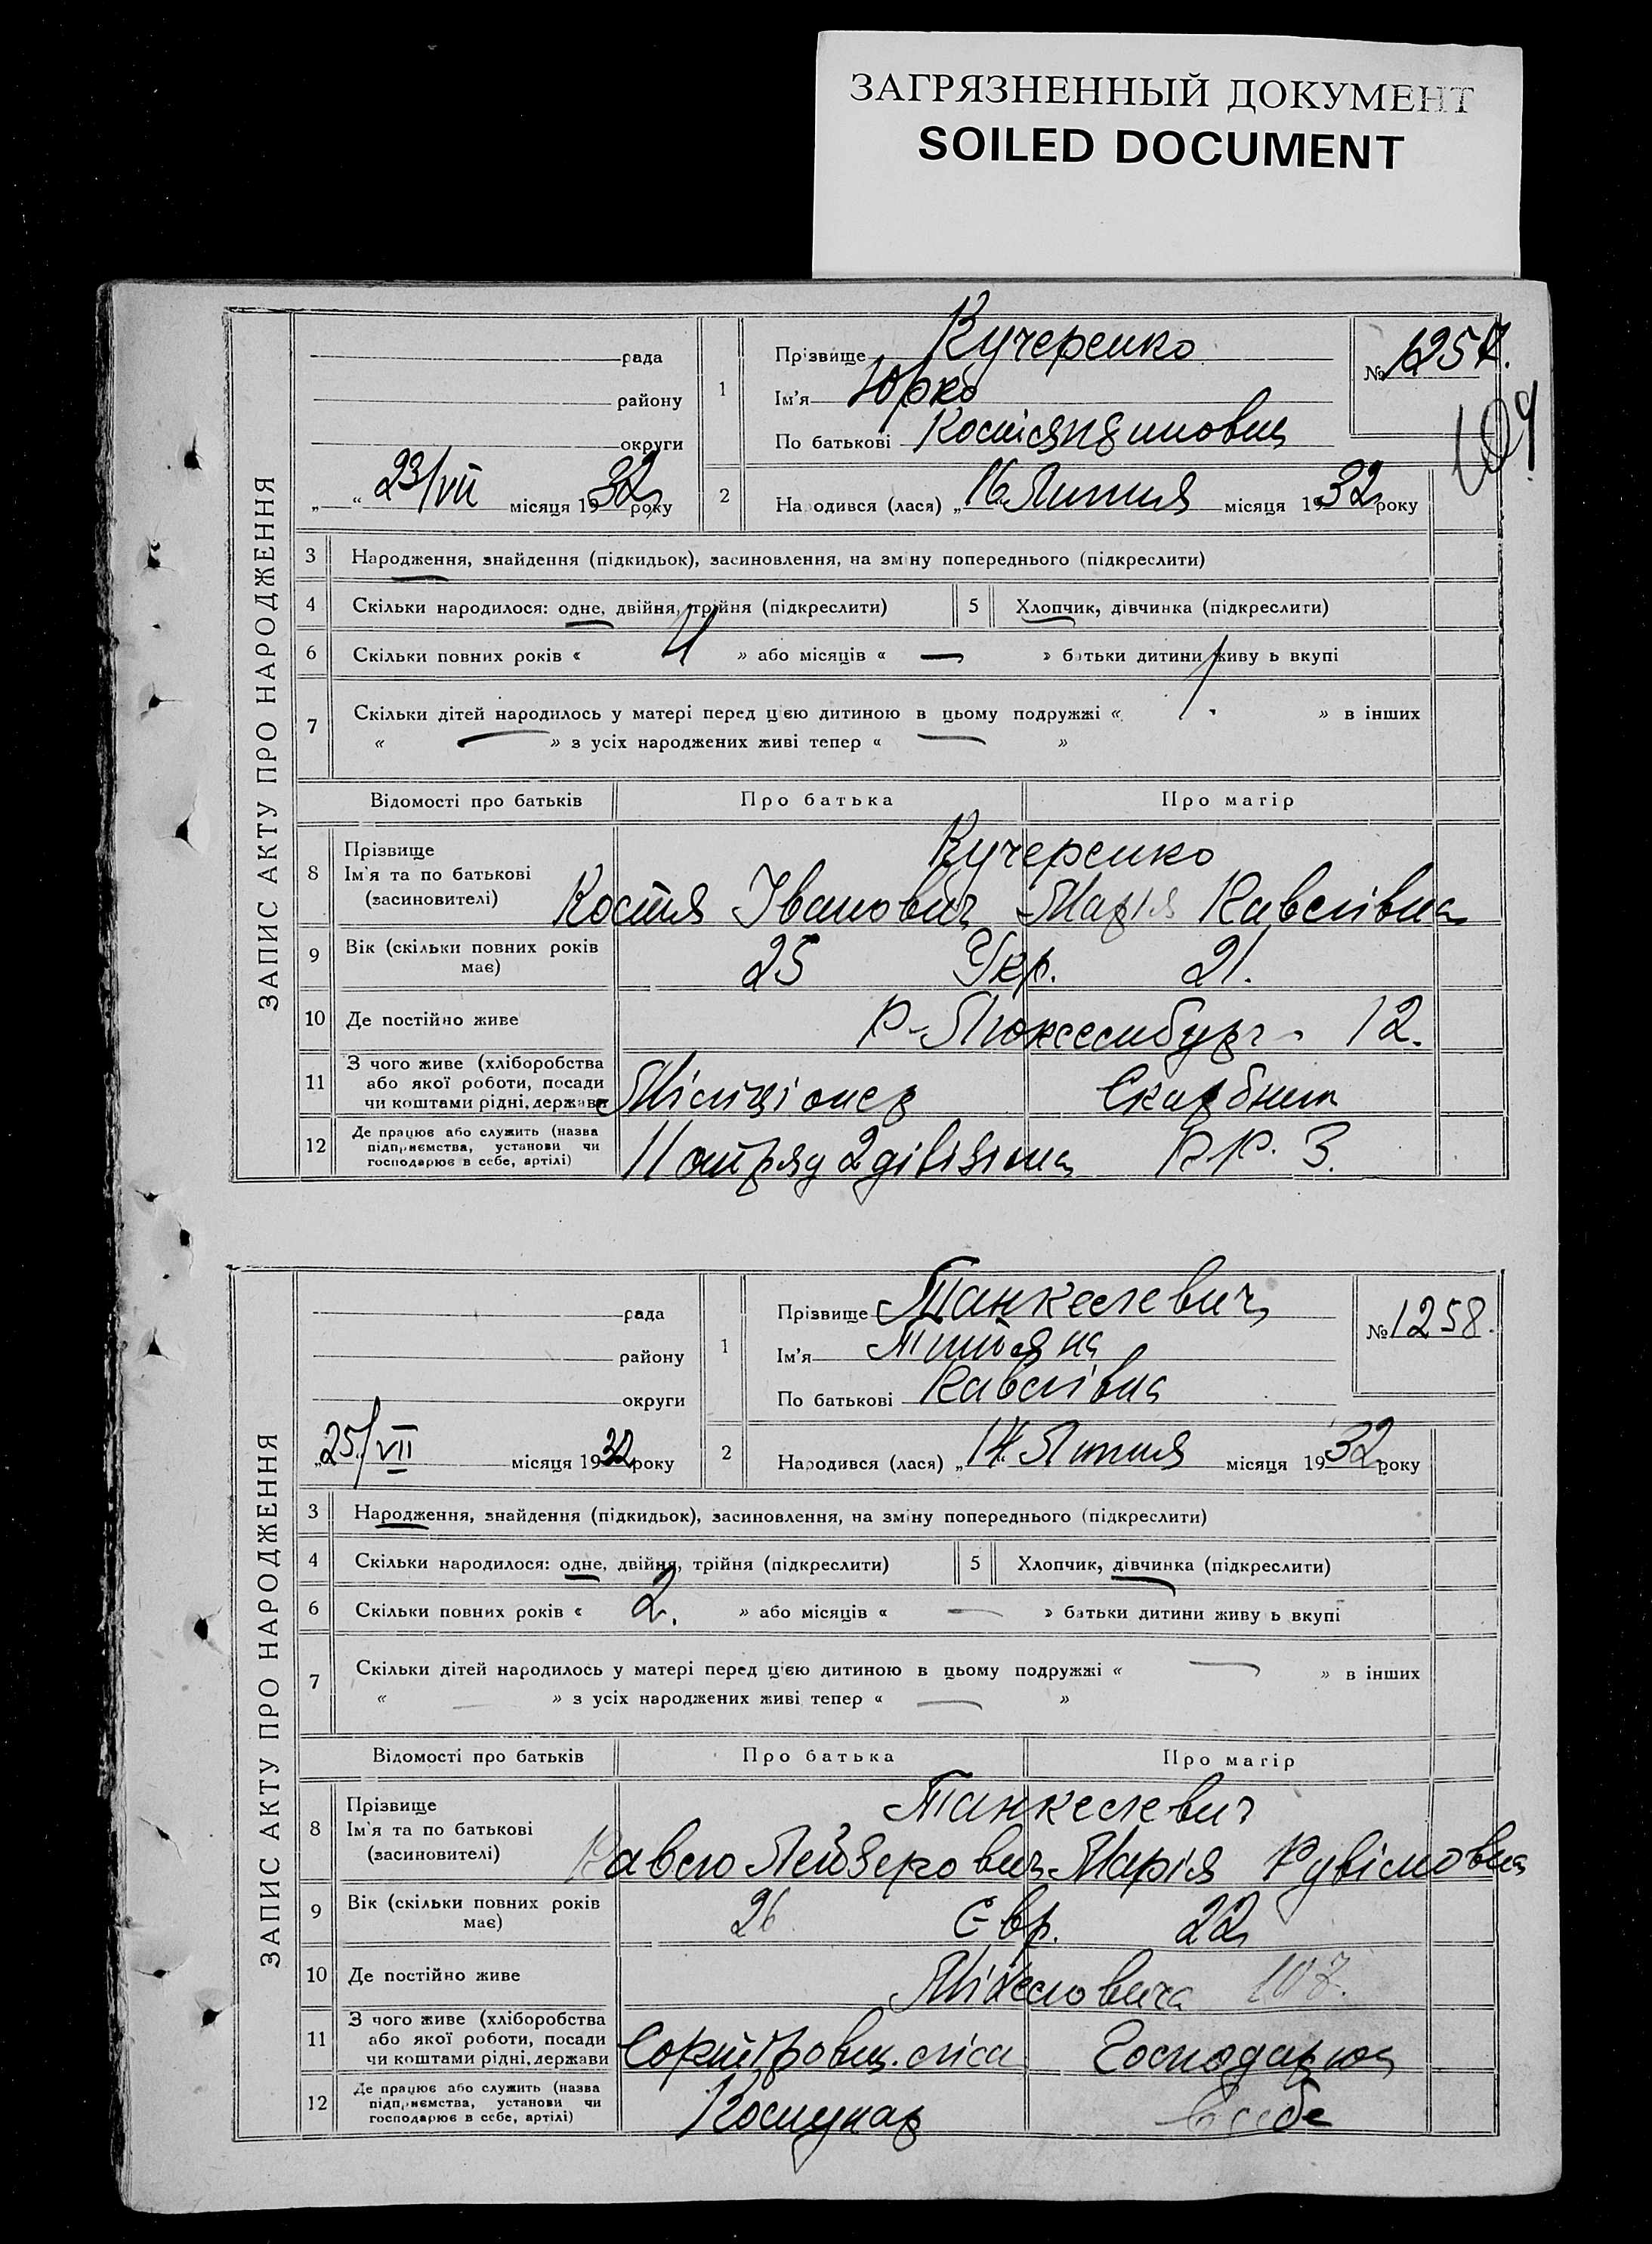 ЗАГРЯЗНЕННЫЙ ДОКУМЕНТ
SOILED DOCUMENT
ЗАПИС АКТУ ПРО НАРОДЖЕННЯ
рада
району
округи
„ “ 23/VII місяця 1932 року
1 Прізвище Кучеренко
Ім'я Юрко
По батькові Костянтинович
№ 1257.
109
2 Народився (лася) „16 Липня місяця 1932 року
3 Народження, знайдення (підкидьок), засиновлення, на зміну попереднього (підкреслити)
4 Скільки народилося: одне, двійня, трійня (підкреслити) 5 Хлопчик, дівчинка (підкреслити)
6 Скільки повних років « 4 » або місяців « — » батьки дитини живуть вкупі
7 Скільки дітей народилось у матері перед цією дитиною в цьому подружжі « 1. » в інших
« — » з усіх народжених живі тепер « — »
Відомості про батьків Про батька Про матір
8 Прізвище Ім'я та по батькові (засновителі)
Кучеренко
Костя Іванович Марія Павлівна
9 Вік (скільки повних років має) 25 Укр. 21.
10 Де постійно живе Р-Люксембург - 12.
11 З чого живе (хліборобства або якої роботи, посади чи коштами рідні, держави Міліціонер Скарбник
12 Де працює або служить (назва підприємства, установи чи господарює в себе, артілі) 11 отряд 2 дівізіона Р.Р. 3.
ЗАПИС АКТУ ПРО НАРОДЖЕННЯ
рада
району
округи
„25/VII місяця 1932 року
1 Прізвище Танкелевич
Ім'я Титяна
По батькові Павлівна
№ 1258.
2 Народився (лася) „14. Липня місяця 1932 року
3 Народження, знайдення (підкидьок), засиновлення, на зміну попереднього (підкреслити)
4 Скільки народилося: одне, двійня, трійня (підкреслити) 5 Хлопчик, дівчинка (підкреслити)
6 Скільки повних років « 2. » або місяців « — » батьки дитини живуть вкупі
7 Скільки дітей народилось у матері перед цією дитиною в цьому подружжі « — » в інших
« — » з усіх народжених живі тепер « — »
Відомості про батьків Про батька Про матір
8 Прізвище Ім'я та по батькові (засиновителі)
Танкелевич
Павло Лейзерович Марія Рувімовна
9 Вік (скільки повних років має) 26 Євр. 22
10 Де постійно живе 107.
11 З чого живе (хліборобства або якої роботи, посади чи коштами рідні, держави Сортіровщ. ліса Господарює
12 Де працює або служить (назва підприємства, установи чи господарює в себе, артілі) Комунар в себе